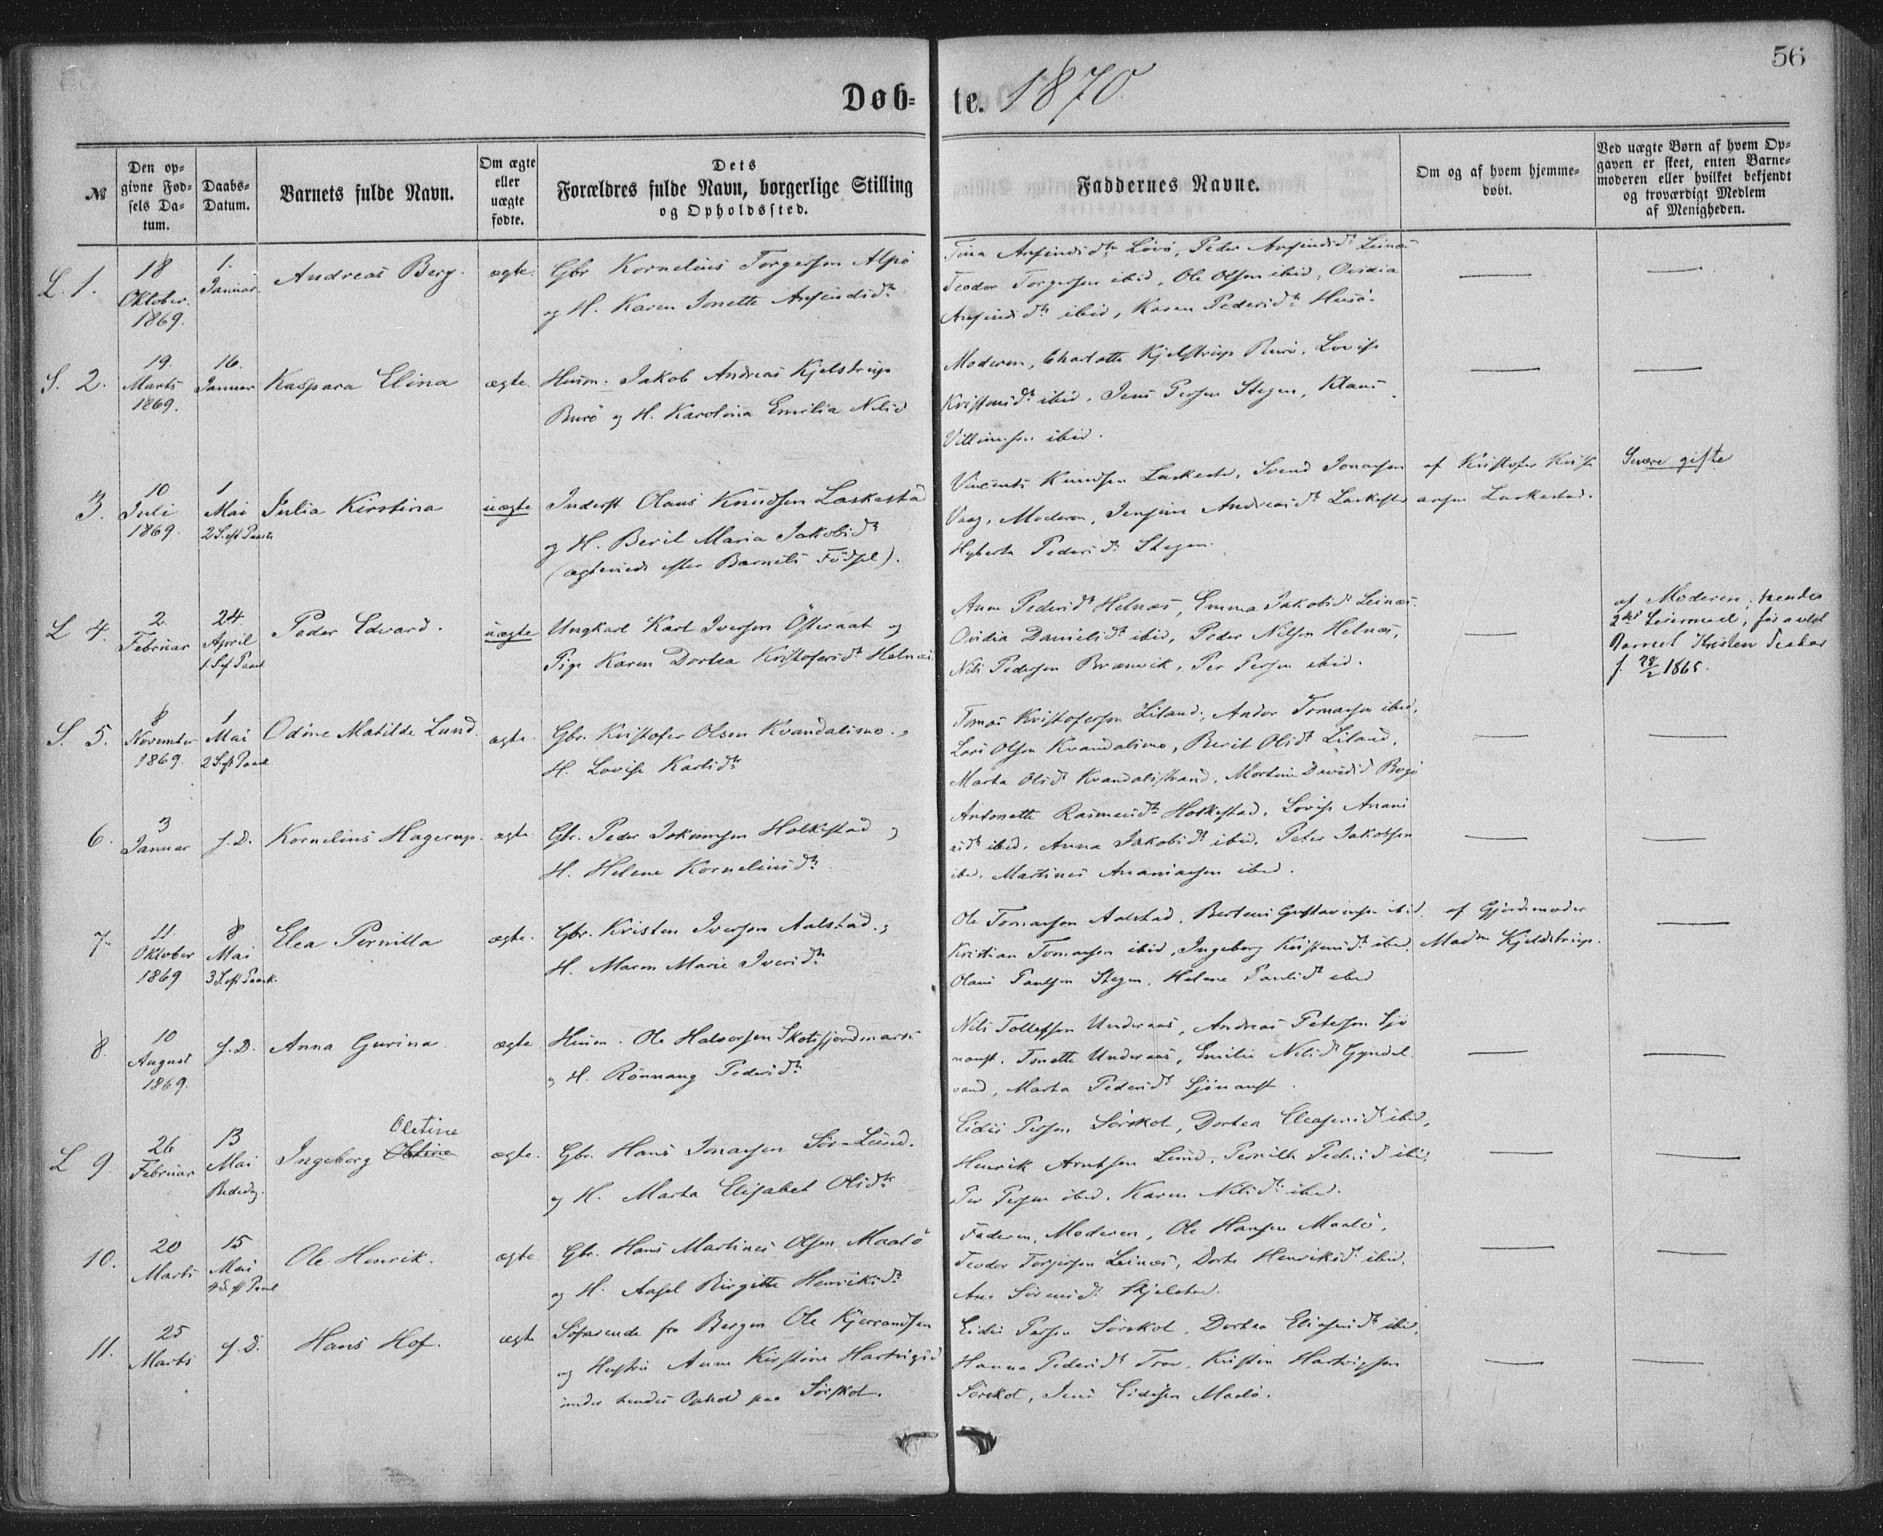 56
Døb= te. 1870
№
Den op=
givne Fød=
sels Da=
tum.
Daabs=
Datum.
Barnets fulde Navn.
Om ægte
eller
uægte
fødte.
Dets
Forældres fulde Navn, borgerlige Stilling
og Opholdssted.
Faddernes Navne.
Om og af hvem hjemme=
døbt.
Ved uægte Børn af hvem Op=
gaven er skeet, enten Barne=
moderen eller hvilket bekjendt
og troværdigt Medlem
af Menigheden.
L. 1.
18
Oktober
1869.
1.
Januar.
Andreas Berg.
ægte.
Gbr Kornelius Torgersen Alpø
og H. Karen Jonette Arfindsdtr
Tina Arfindsdtr Løvø, Peder Leines
Teodor Torgersen ibid, Ole Olsen ibid, Ovidia
Arfindsdtr ibid, Karen Pedersdtr Husø.
S. 2.
19.
Marts
1869.
16.
Januar
Kaspara Elina
ægte.
Husm. Jakob Andreas Kjelstrup
Burø og H. Karolina Emilia Nilsd
Moderen, Charlotte Kjelstrup Burø, Lovise
ibid. Jens Persen Stegen, Klaus
ibid.
3.
10
Juli
1869.
1
Mai
2 S. eft Paaske
Julia Kirstina
uægte
Inderst Olaus Knudsen Laskestad
og H. Beril Maria Jakobsdtr
(ægteviede efter Barnets Fødsel).
Vincents Knudsen, Svend Jonassen
Vaag, Moderen, Jensine Andreasdtr
Pedersdtr Stegen.
af Kristofer
Laskestad.
Senere gifte
L 4.
2
Februar
24
April
1 S. eft Paask
Peder Edvard.
uægte
Ungkarl Karl Iversen Østeraat og
Pige Karen Dortea Kristofersdtr Helnes
Anne Pedersdtr Helnæs, Emma Jakobsdtr Leines.
Ovidia Danielsdtr ibid, Peder Nilsen Helnæs,
Nils Pedersen Brænvik, Per Persen ibid.
af Moderen; hendes
2det Leiermaal, før avlet
Barnet Kristen
f. 28/2 1865.
S. 5.
8
November
1869.
1
Mai
2 S. eft Paask
Odine Matilde Lund.
ægte.
Gbr. Kristofer Olsen Kvandalsmo.
H. Lovise Karlsdtr
Tomas Kristofersen Liland, Andor Tomassen ibid,
Lars Olsen Kvandalsmo, Berit Olsdtr Liland,
Marta Olsdtr Kvandalsstrand, Mortine
6.
3
Januar
f. D.
Kornelius Hagerup.
ægte.
Gbr. Peder Jokumsen Holkestad
H. Helene Korneliusdtr
Antonette Rasmusdtr Holkestad, Lovise Anani
asdtr ibid. Anna Jakobsdtr ibid. Peter Jakobsen
ibid. Martines Ananiassen ibid.
7.
11.
Oktober
1869
8
Mai
3 S. eft Paask.
Elea Pernilla
ægte.
Gbr. Kristen Iversen Aalstad.
H. Maren Marie Iversdtr
Ole Tomassen Aalstad, Berteus Gustavsen ibid.
Kristian Tomassen ibid, Ingeborg ibid.
Olaus Paulsen Stegen. Helene Paulsdtr ibid
af Gjordemoder
Madm Kjeldstrup.
8.
10
August
1869.
f. D.
Anna Gurina.
ægte
Husm. Ole Halvorsen Skotsfjordmark
og H. Rønnaug Pedersdtr
Nils Tollefsen Underaas, Andreas Petersen Sjø
naust. Tonette Underaas, Emilie Nilsdtr Gyndel
vand, Marta Pedersdtr Sjønaust.
L 9.
26
Februar
13
Mai
Bededag.
Oletine
Ingeborg
ægte.
Gbr. Hans Jonassen Sør-Lund.
og H. Marta Elisabet Olsdtr
Eidis Persen Sørskot, Dortea ibid,
Henrik Arntsen Lund, Pernille Pedersd ibid,
Per Persen ibid. Karen Nilsdtr ibid.
10.
20
Marts
15
Mai
4 S. eft Paask
Ole Henrik.
ægte.
Gbr. Hans Martines Olsen Maalø
og H. Aasel Birgitte Henriksdtr
Faderen, Moderen, Ole Hansen Maalø,
Teodor Torgersen Leines, Dorte Henriksdtr ibid.
Ane Sørensdtr Skjelstad.
11.
25
Marts
f. D.
Hans Hof.
ægte
Søfarende fra Bergen Ole Kjerrandsen
og Hustru Anne Kirstine Hartvigsd
under hendes Ophold paa Sørskot.
Eidis Persen Sørskot, Dortea ibid,
Hanna Pedersdtr Tror, Kristen Hartvigsen
Sørskot, Jens Eidissen Maalø.